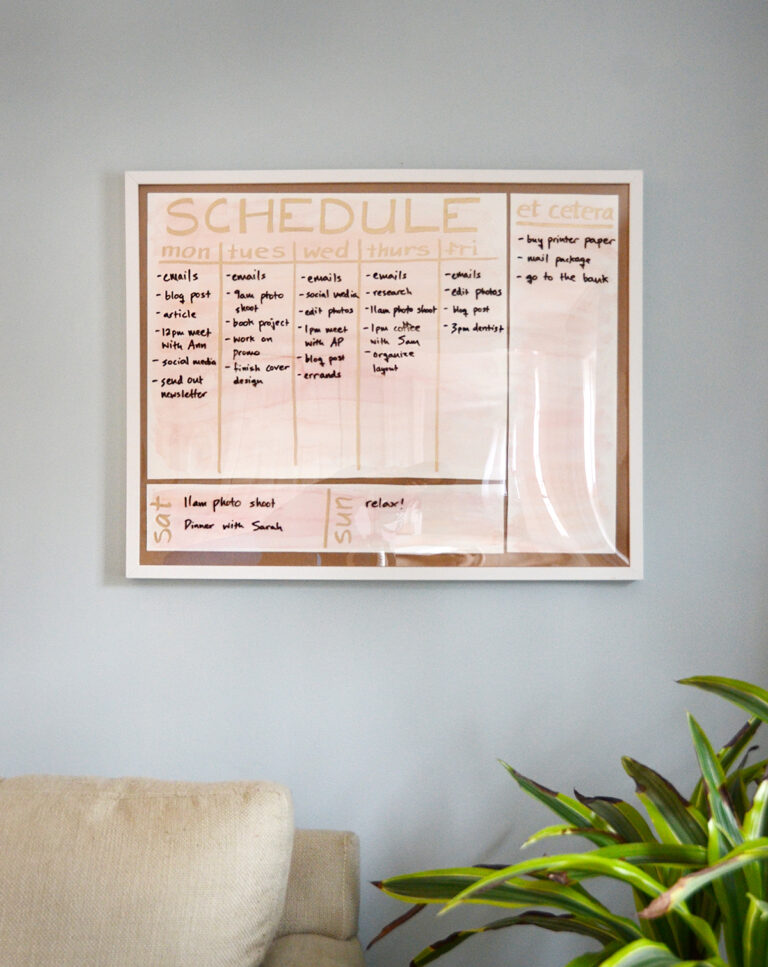 SCHEDULE
mon tues wed thurs fri
- emails
- blog post
- article
- 12pm meet
with Ann
- social media
- send out
newsletter
- emails
- 9am photo
shoot
- book project
- work on
promo
- finish cover
design
- emails
- social media
- edit photos
- 1pm meet
with AP
- blog post
- errands
- emails
- research
- 11am photo shoot
- 1pm coffee
with Sam
- organize
layout
- emails
- edit photos
- blog post
- 3pm dentist
et cetera
- buy printer paper
- mail package
- go to the bank
sat
11am photo shoot
Dinner with Sarah
sun
relax!